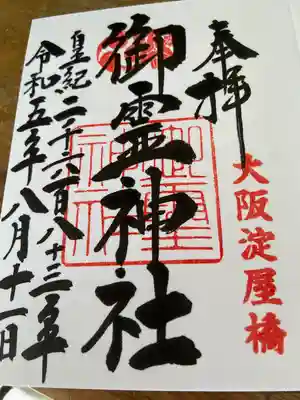 奉拝
大阪淀屋橋
御霊神社
皇紀二千六百八十三年
令和五年八月十一日